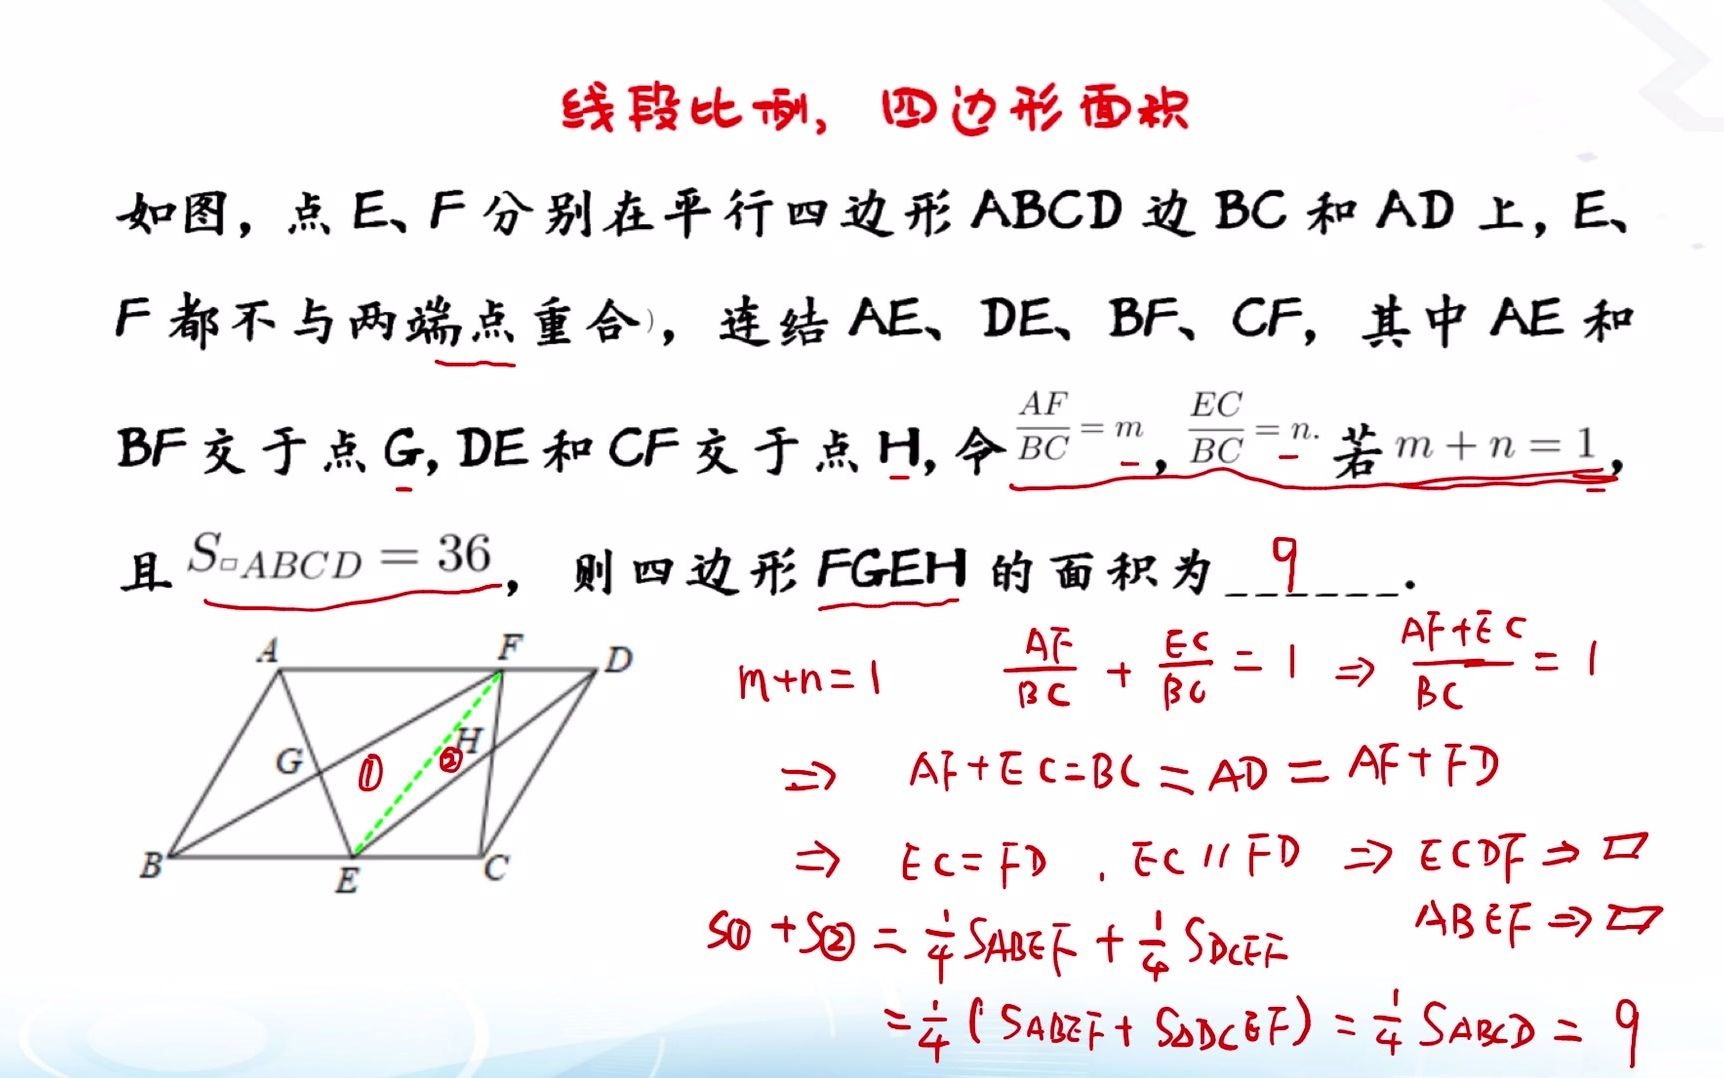 线段比例, 四边形面积
如图，点 E、F 分别在平行四边形 ABCD 边 BC 和 AD 上，E、
F 都不与两端点重合），连结 AE、DE、BF、CF，其中 AE 和
BF 交于点 G, DE 和 CF 交于点 H, 令 AF/BC = m, EC/BC = n. 若 m + n = 1,
且 S▱ABCD = 36， 则四边形 FGEH 的面积为 9 .
A F D
G ① ② H
B E C
m+n=1 AF/BC + EC/BC = 1 ⇒ AF+EC/BC = 1
⇒ AF+EC=BC=AD=AF+FD
⇒ EC=FD . EC//FD ⇒ ECDF⇒▱
ABEF⇒▱
S① + S② = 1/4 SABEF + 1/4 SDCEF
= 1/4 (SABEF + S△DCEF) = 1/4 SABCD = 9